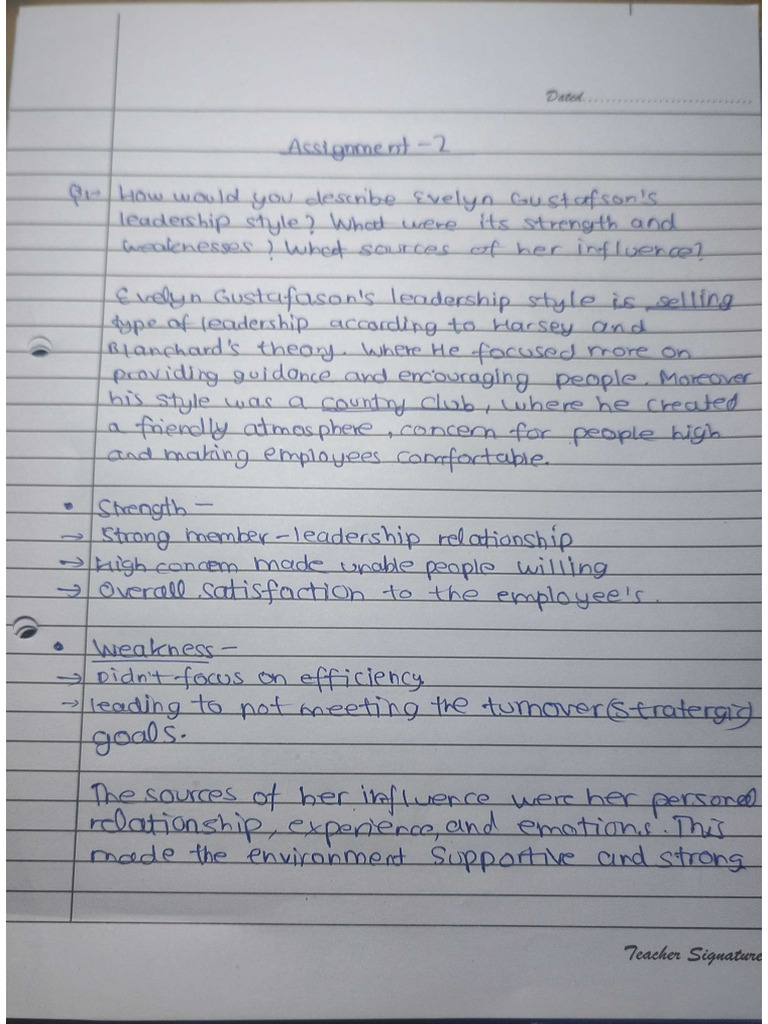 Dated..............................
Assignment - 2
Q1- How would you describe Evelyn Gustafson's
leadership style? What were its strength and
weaknesses? What sources of her influence?
Evelyn Gustafason's leadership style is selling
type of leadership according to Harsey and
Blanchard's theory. Where He focused more on
providing guidance and encouraging people. Moreover
his style was a country club, where he created
a friendly atmosphere, concern for people high
and making employees comfortable.
• Strength -
→ Strong member-leadership relationship
→ High concern made unable people willing
→ Overall satisfaction to the employee's.
• Weakness -
→ Didn't focus on efficiency
→ leading to not meeting the turnover (Stratergic)
goals.
The sources of her influence were her personal
relationship, experience, and emotions. This
made the environment supportive and strong
Teacher Signature